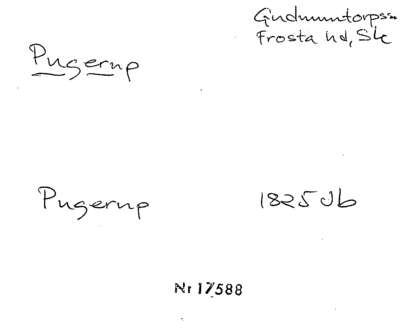 Gudmuntorps sn
Frosta hd, Sk
Pugerup
Pugerup
1825 Jb
Nr 17588